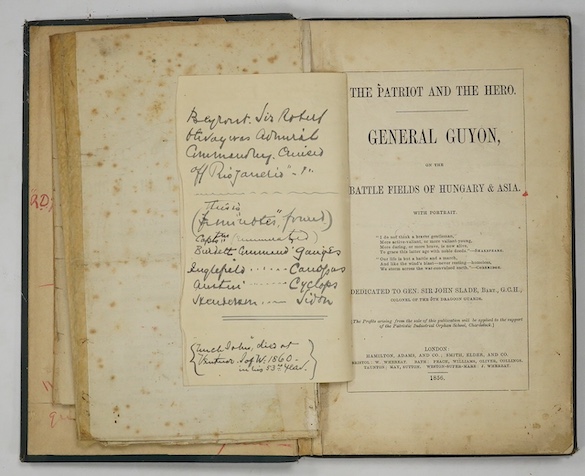 Beyrout. Sir Robert
Otway was Admiral
Commanding. Cruised
off Rio Janeiro
This is
from "notes" found
Capts
Burdett Command Ganges
Inglefield ...... Canopus
Austin ...... Cyclops
Henderson .... Sidon
Uncle John, died at
Ventnor 1860.
in his 83rd Year.
R.D.
THE PATRIOT AND THE HERO.
GENERAL GUYON,
ON THE
BATTLE FIELDS OF HUNGARY & ASIA.
WITH PORTRAIT.
"I do not think a braver gentleman,
More active-valiant, or more valiant-young,
More daring, or more bold, is now alive,
To grace this latter age with noble deeds."—SHAKSPEARE.
"Our life is but a battle and a march,
And like the wind's blast—never resting—homeless,
We storm across the war-convulsed earth."—COLERIDGE.
DEDICATED TO GEN: SIR JOHN SLADE, BART., G.C.H.;
COLONEL OF THE 5TH DRAGOON GUARDS.
(The Profits arising from the sale of this publication will be applied to the support
of the Patriotic Industrial Orphan School,
LONDON:
HAMILTON, ADAMS, AND CO.; SMITH, ELDER, AND CO.
BRISTOL: W. WHEREAT. BATH: PEACH, WILLIAMS, OLIVER, COLLINGS.
TAUNTON: MAY, SUTTON. WESTON-SUPER-MARE: J. WHEREAT.
1856.